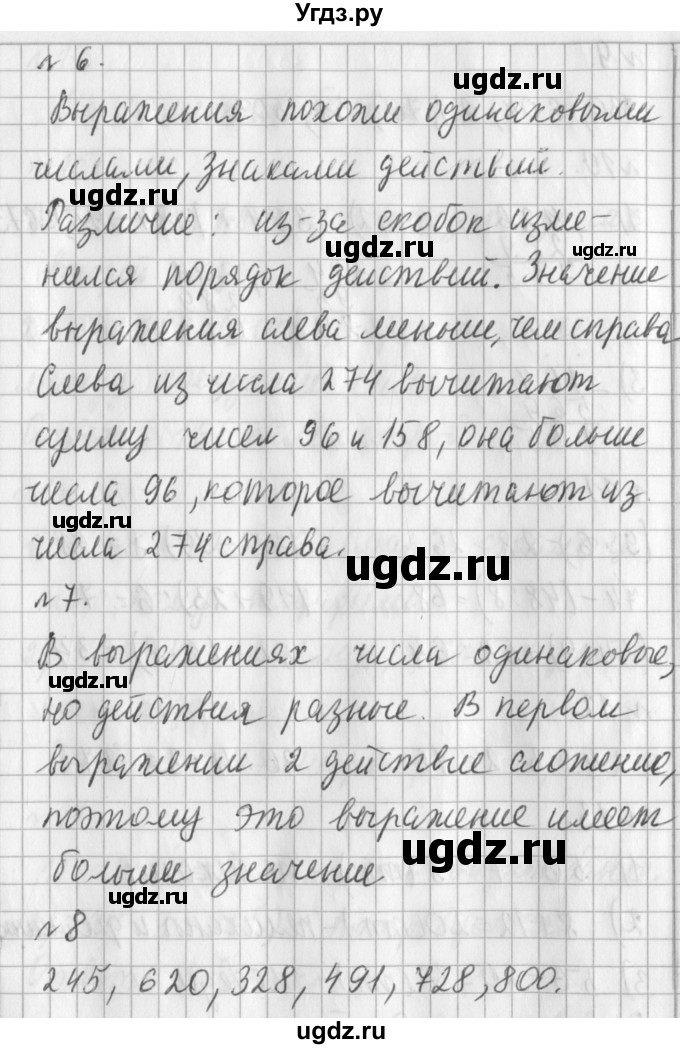 Угдз.ру
№ 6.
ugdz.ru
Выражения похожи одинаковыми
числами, знаками действий.
ugdz.ru ugdz.ru
Различие: из-за скобок изме-
ugdz.ru ugdz.ru
нился порядок действий. Значение
выражения слева меньше, чем справа
Слева из числа 274 вычитают
сумму чисел 96 и 158, она больше
числа 96, которое вычитают из
ugdz.ru
числа 274 справа.
ugdz.ru
№ 7.
В выражениях числа одинаковые,
ugdz.ru
но действия разные. В первом
выражении 2 действие сложение,
поэтому это выражение имеет
ugdz.ru
больши значение
ugdz.ru
№ 8
245, 620, 328, 491, 728, 800.
ugdz.ru